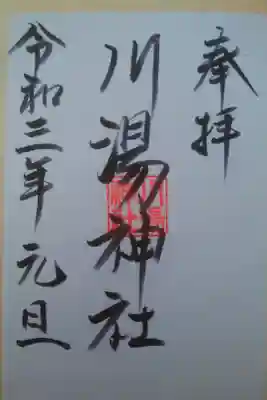 奉拝
川湯神社
令和三年 元旦